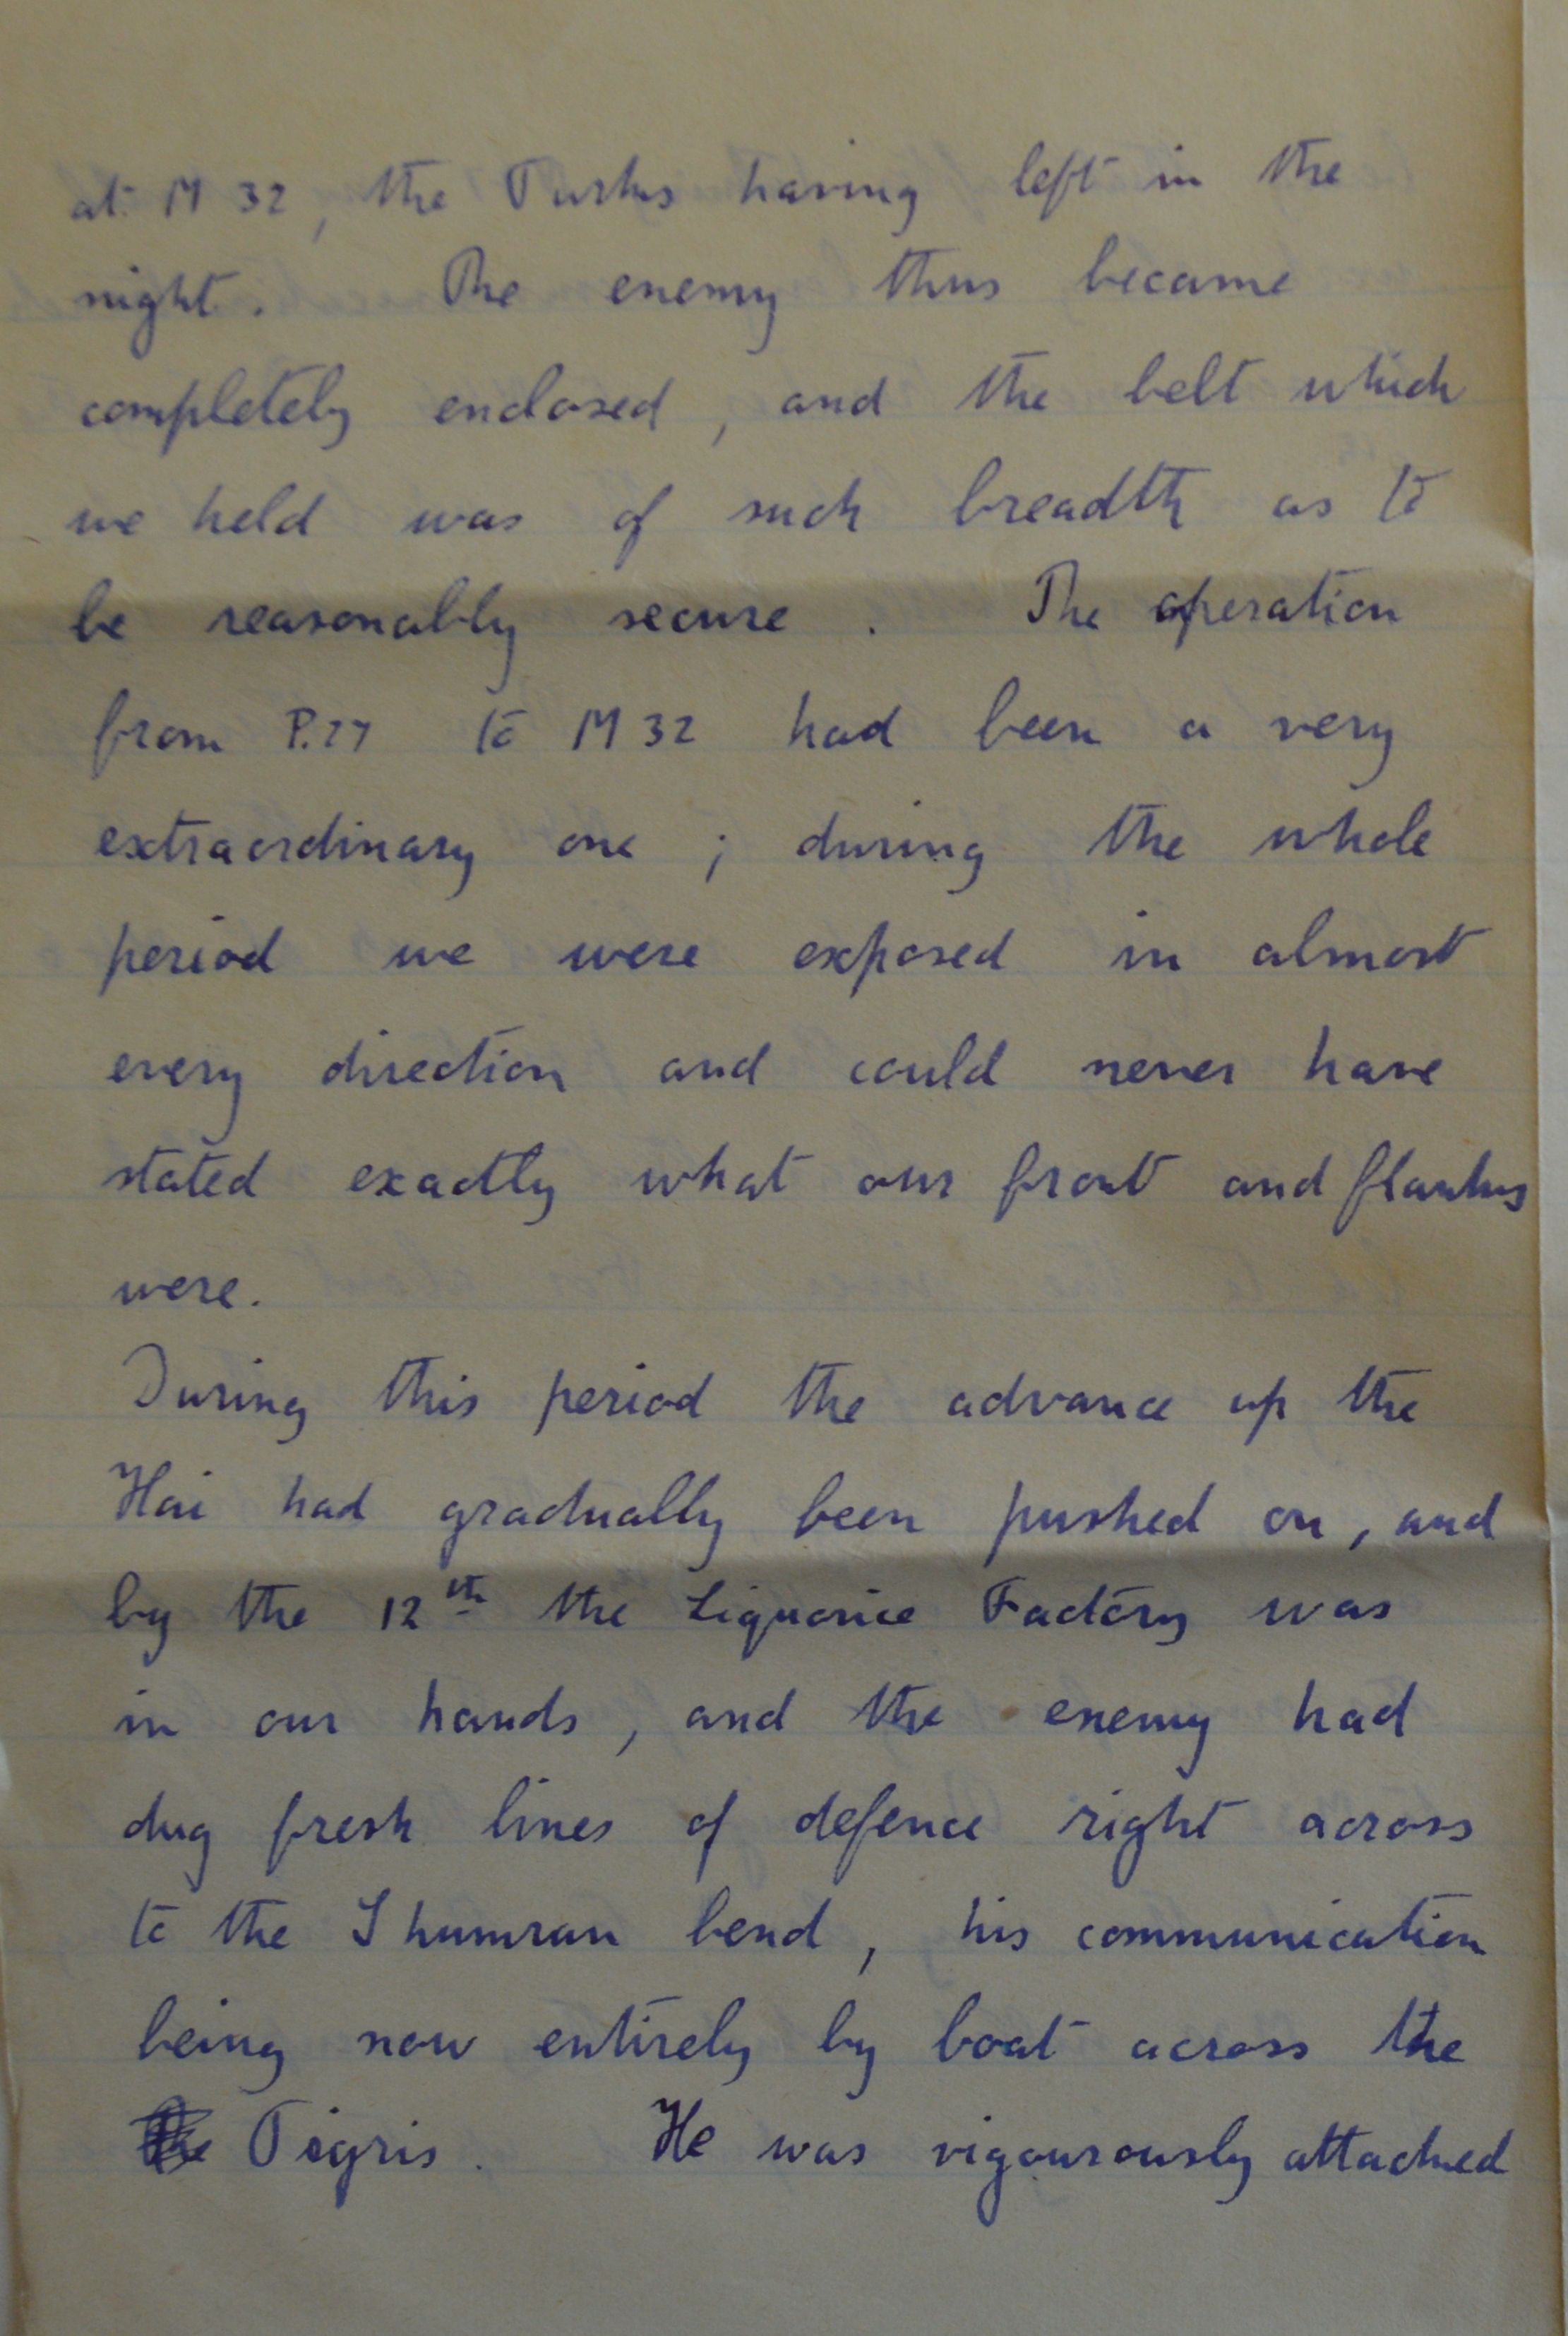 at M 32, the Turks having left in the
night. The enemy thus became
completely enclosed, and the belt which
we held was of such breadth as to
be reasonably secure. The operation
from P.27 to M 32 had been a very
extraordinary one; during the whole
period we were exposed in almost
every direction and could never have
stated exactly what our front and flanks
were.
During this period the advance up the
Hai had gradually been pushed on, and
by the 12th the Liquorice Factory was
in our hands, and the enemy had
dug fresh lines of defence right across
to the Shumran bend, his communication
being now entirely by boat across the
Tigris. He was vigourously attacked